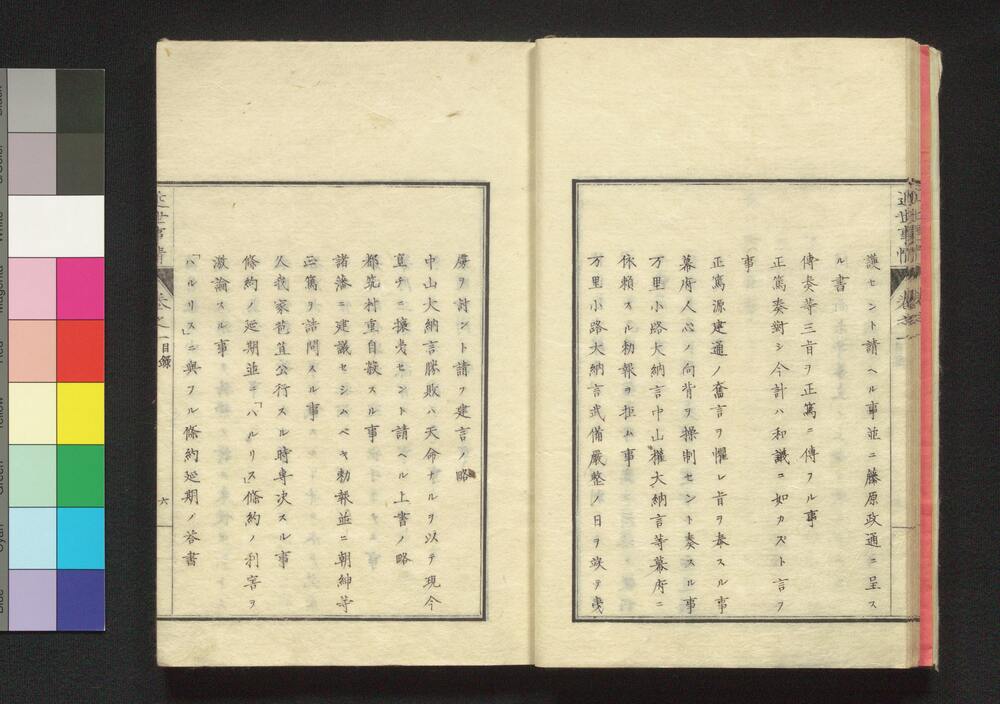 護セント請ヘル事並ニ藤原政通ニ呈ス
ル書
傳奏等三旨ヲ正篤ニ傳フル事
正篤奏對シ今計ハ和議ニ如カズト言フ
事
正篤源建通ノ奮言ヲ懼レ旨ヲ奉スル事
幕府人心ノ向背ヲ操制セント奏スル事
万里小路大納言中山權大納言等幕府ニ
依頼スル勅報ヲ拒ム事
万里小路大納言武備嚴整ノ日ヲ竢テ夷
虜ヲ討ント請フ建言ノ略
中山大納言勝敗ハ天命ナルヲ以テ現今
直チニ攘夷セント請ヘル上書ノ略
都筑村重自殺スル事
諸藩ニ建議セシムベキ勅報並ニ朝紳等
正篤ヲ詰問スル事
久我家苞苴公行スル時専决スル事
條約ノ延期並ニ「ハルリス」條約ノ利害ヲ
激論スル事
「ハルリス」ニ與フル條約延期ノ答書
近世事情
巻之一
目録
六